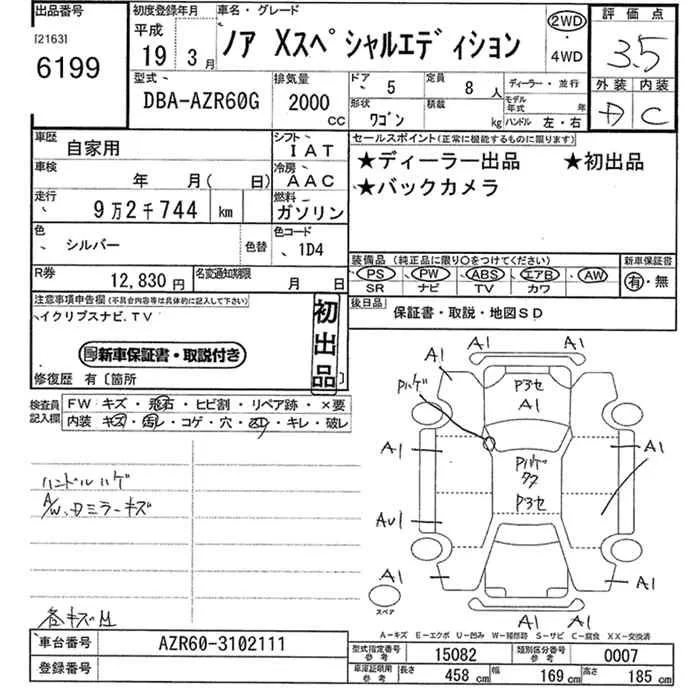 出品番号
[2163]
6199
初度登録年月
平成
19 3月
車名・グレード
ノア Xスペシャルエディション
2WD
・
4WD
評価点
3.5
外装 内装
D C
型式
DBA-AZR60G
排気量
2000
CC
ドア 5
定員 8 人
形状 ワゴン
積載 kg
ディーラー・並行
モデル年式 年
ハンドル 左・右
車歴 自家用
シフト IAT
車検 年 月( 日)
冷房 AAC
走行 9万2千744 km
燃料 ガソリン
色 シルバー 色替
色コード 1D4
R券 12,830円
名変通知期限 月 日
セールスポイント(正常に機能するものに限ります)
★ディーラー出品 ★初出品
★バックカメラ
装備品(純正品に限り○をつけてください)
PS PW ABS エアB AW
SR ナビ TV カワ
新車保証書
有・無
後日品 保証書・取説・地図SD
注意事項申告欄(不具合内容等は具体的に記入して下さい)
イクリプスナビ.TV
新車保証書・取説付き
初出品
修復歴 有〔箇所 〕
検査員記入欄
FW キズ・飛石・ヒビ割・リペア跡・×要
内装 キズ・汚レ・コゲ・穴・凹・キレ・破レ
ハンドルハゲ
A/W、Dミラーキズ
各キズM
A1
A1
A1
Pハゲ
P3セ
A1
A1
A1
Pハゲ
P3セ
AU1
A1
A1
A1
スペア
A-キズ E-エクボ U-凹み W-補修跡 S-サビ C-腐食 XX-交換済
車台番号 AZR60-3102111
登録番号
型式指定番号 参考 15082
類別区分番号 参考 0007
車庫証明用 参考
長さ 458 cm
幅 169 cm
高さ 185 cm